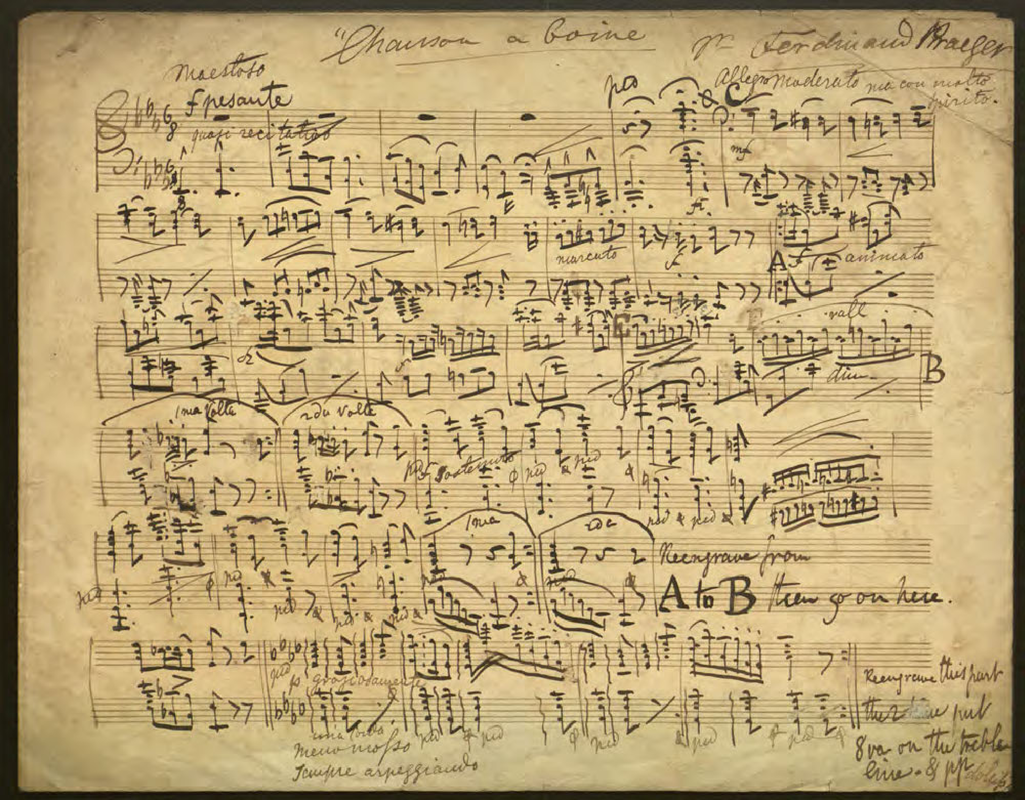 "Chanson a boire
Ferdinand Praeger
Maestoso
f pesante
quasi recitativo
ped
Allegro moderato ma con molto
spirito.
mf
marcato
f
A f animato
E
E
rall
dim
B
1ma Volta
2da Volta
sostenuto
ped
ped
ped
ped
1ma
2da
Reengrave from
A to B then go on here.
ped
ped
ped
ped
ped
ped
p graziosamente
una corda
Meno mosso
Sempre arpeggiando
ped
ped
ped
ped
ped
Reengrave this part
the 2 time put
8va on the treble
line. & pp